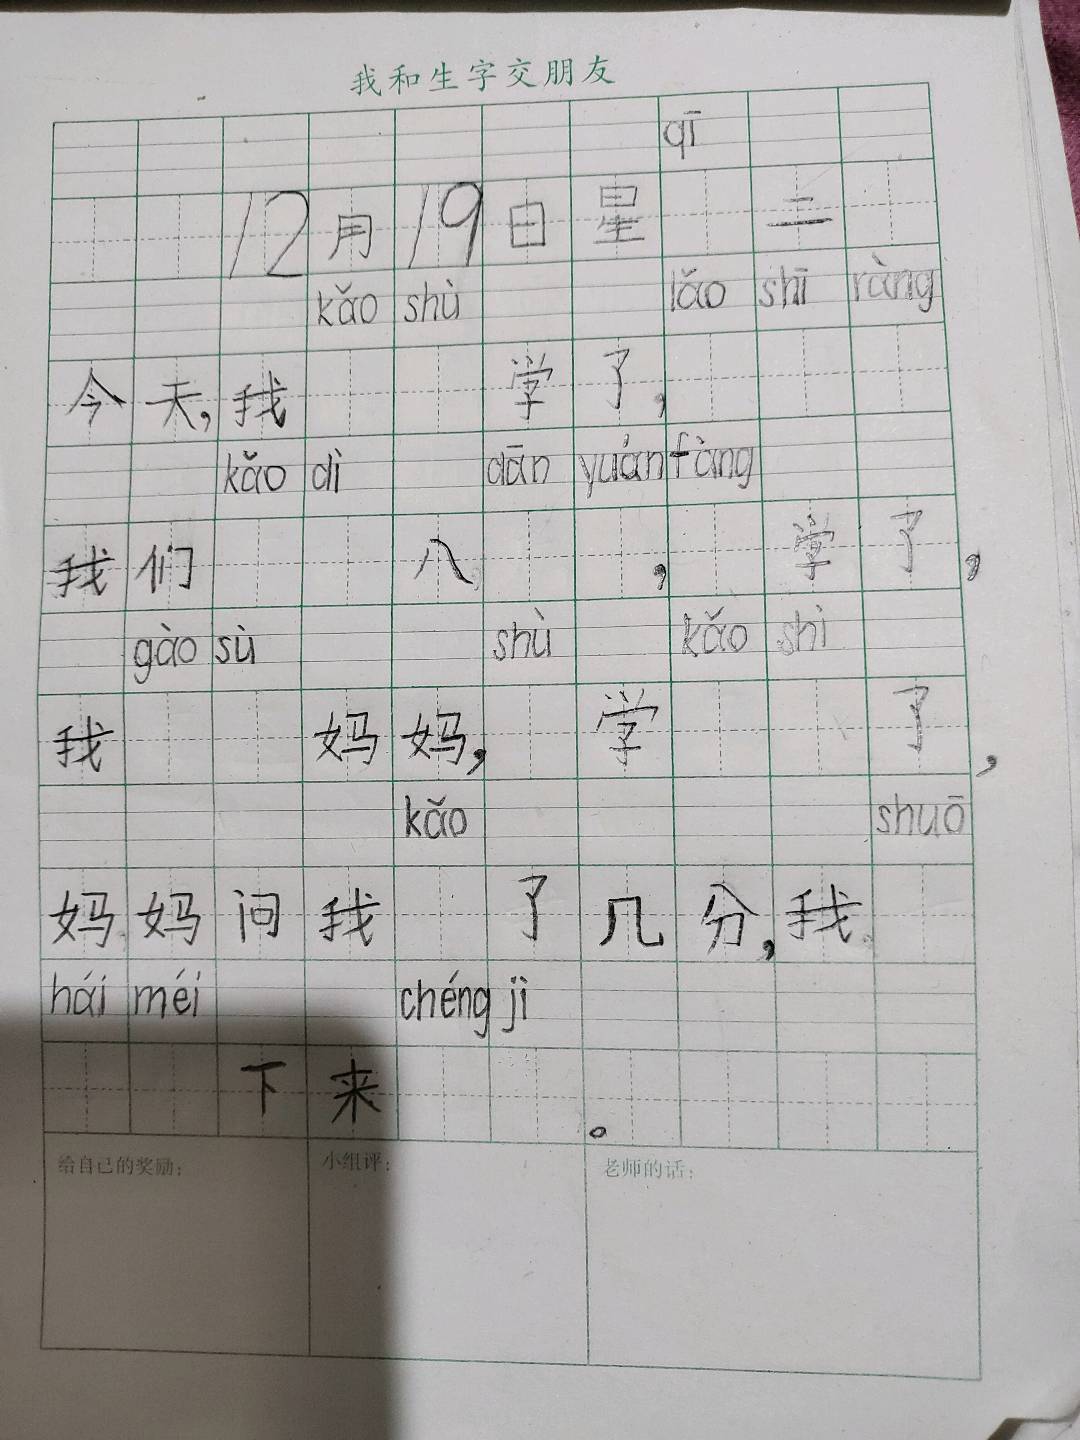 我和生字交朋友
qī
12月19日星 二
kǎo shù lǎo shī ràng
今天,我 学了,
kǎo dì dān yuán fàng
我们 八 , 学了,
gào sù shù kǎo shì
我 妈妈, 学 了,
kǎo shuō
妈妈问我 了几分,我
hái méi chéng jì
下来 。
给自己的奖励: 小组评: 老师的话: